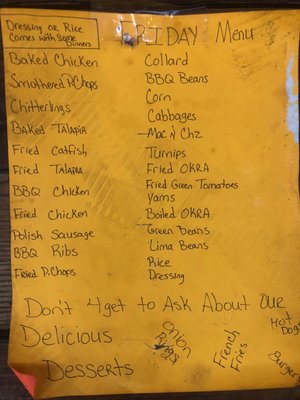 Dressing or Rice
Comes with Some
Dinners
FRIDAY Menu
Baked Chicken
Smothered P.Chops
Chitterlings
Baked Talapia
Fried Catfish
Fried Talapia
BBQ Chicken
Fried Chicken
Polish Sausage
BBQ Ribs
Fried P.Chops
Collard
BBQ Beans
Corn
Cabbages
Mac N Chz
Turnips
Fried OKRA
Fried Green Tomatoes
Yams
Boiled OKRA
Green Beans
Lima Beans
Rice
Dressing
Don't 4get to Ask About Our
Delicious
Desserts
Onion
Rings
French
Fries
Hot
Dogs
Burger